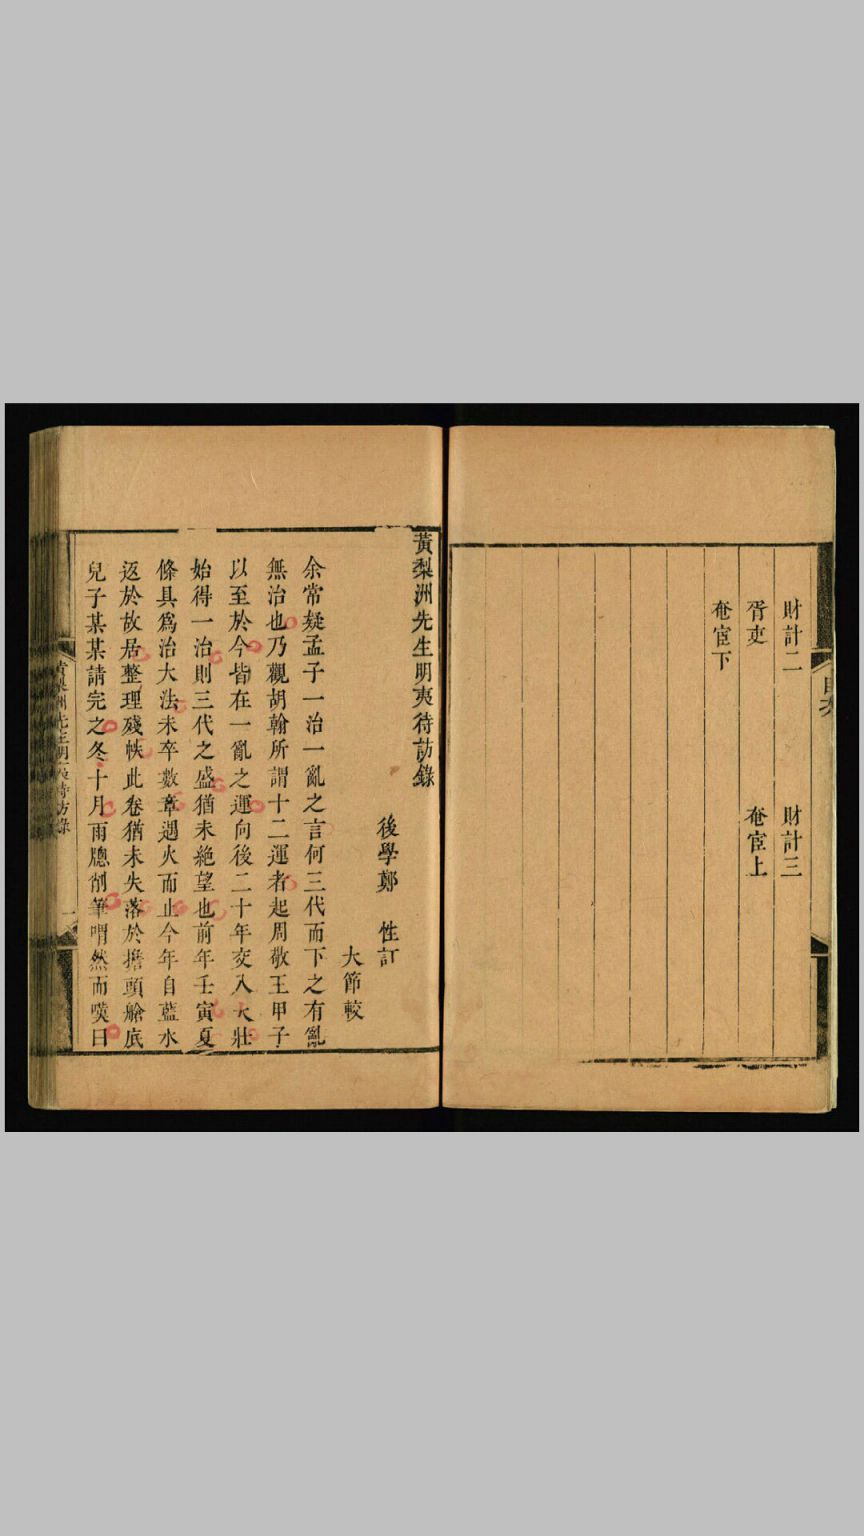 財計二　財計三
胥吏　奄宦上
奄宦下
目次
黃梨洲先生明夷待訪錄
後學鄭　性訂
大節較
余常疑孟子一治一亂之言何三代而下之有亂
無治也乃觀胡翰所謂十二運者起周敬王甲子
以至於今皆在一亂之運向後二十年交入大壯
始得一治則三代之盛猶未絕望也前年壬寅夏
條具爲治大法未卒數章遇火而止今年自藍水
返於故居整理殘帙此卷猶未失落於擔頭艙底
兒子某某請完之冬十月雨牕削筆喟然而嘆曰
黃梨洲先生明夷待訪錄　一